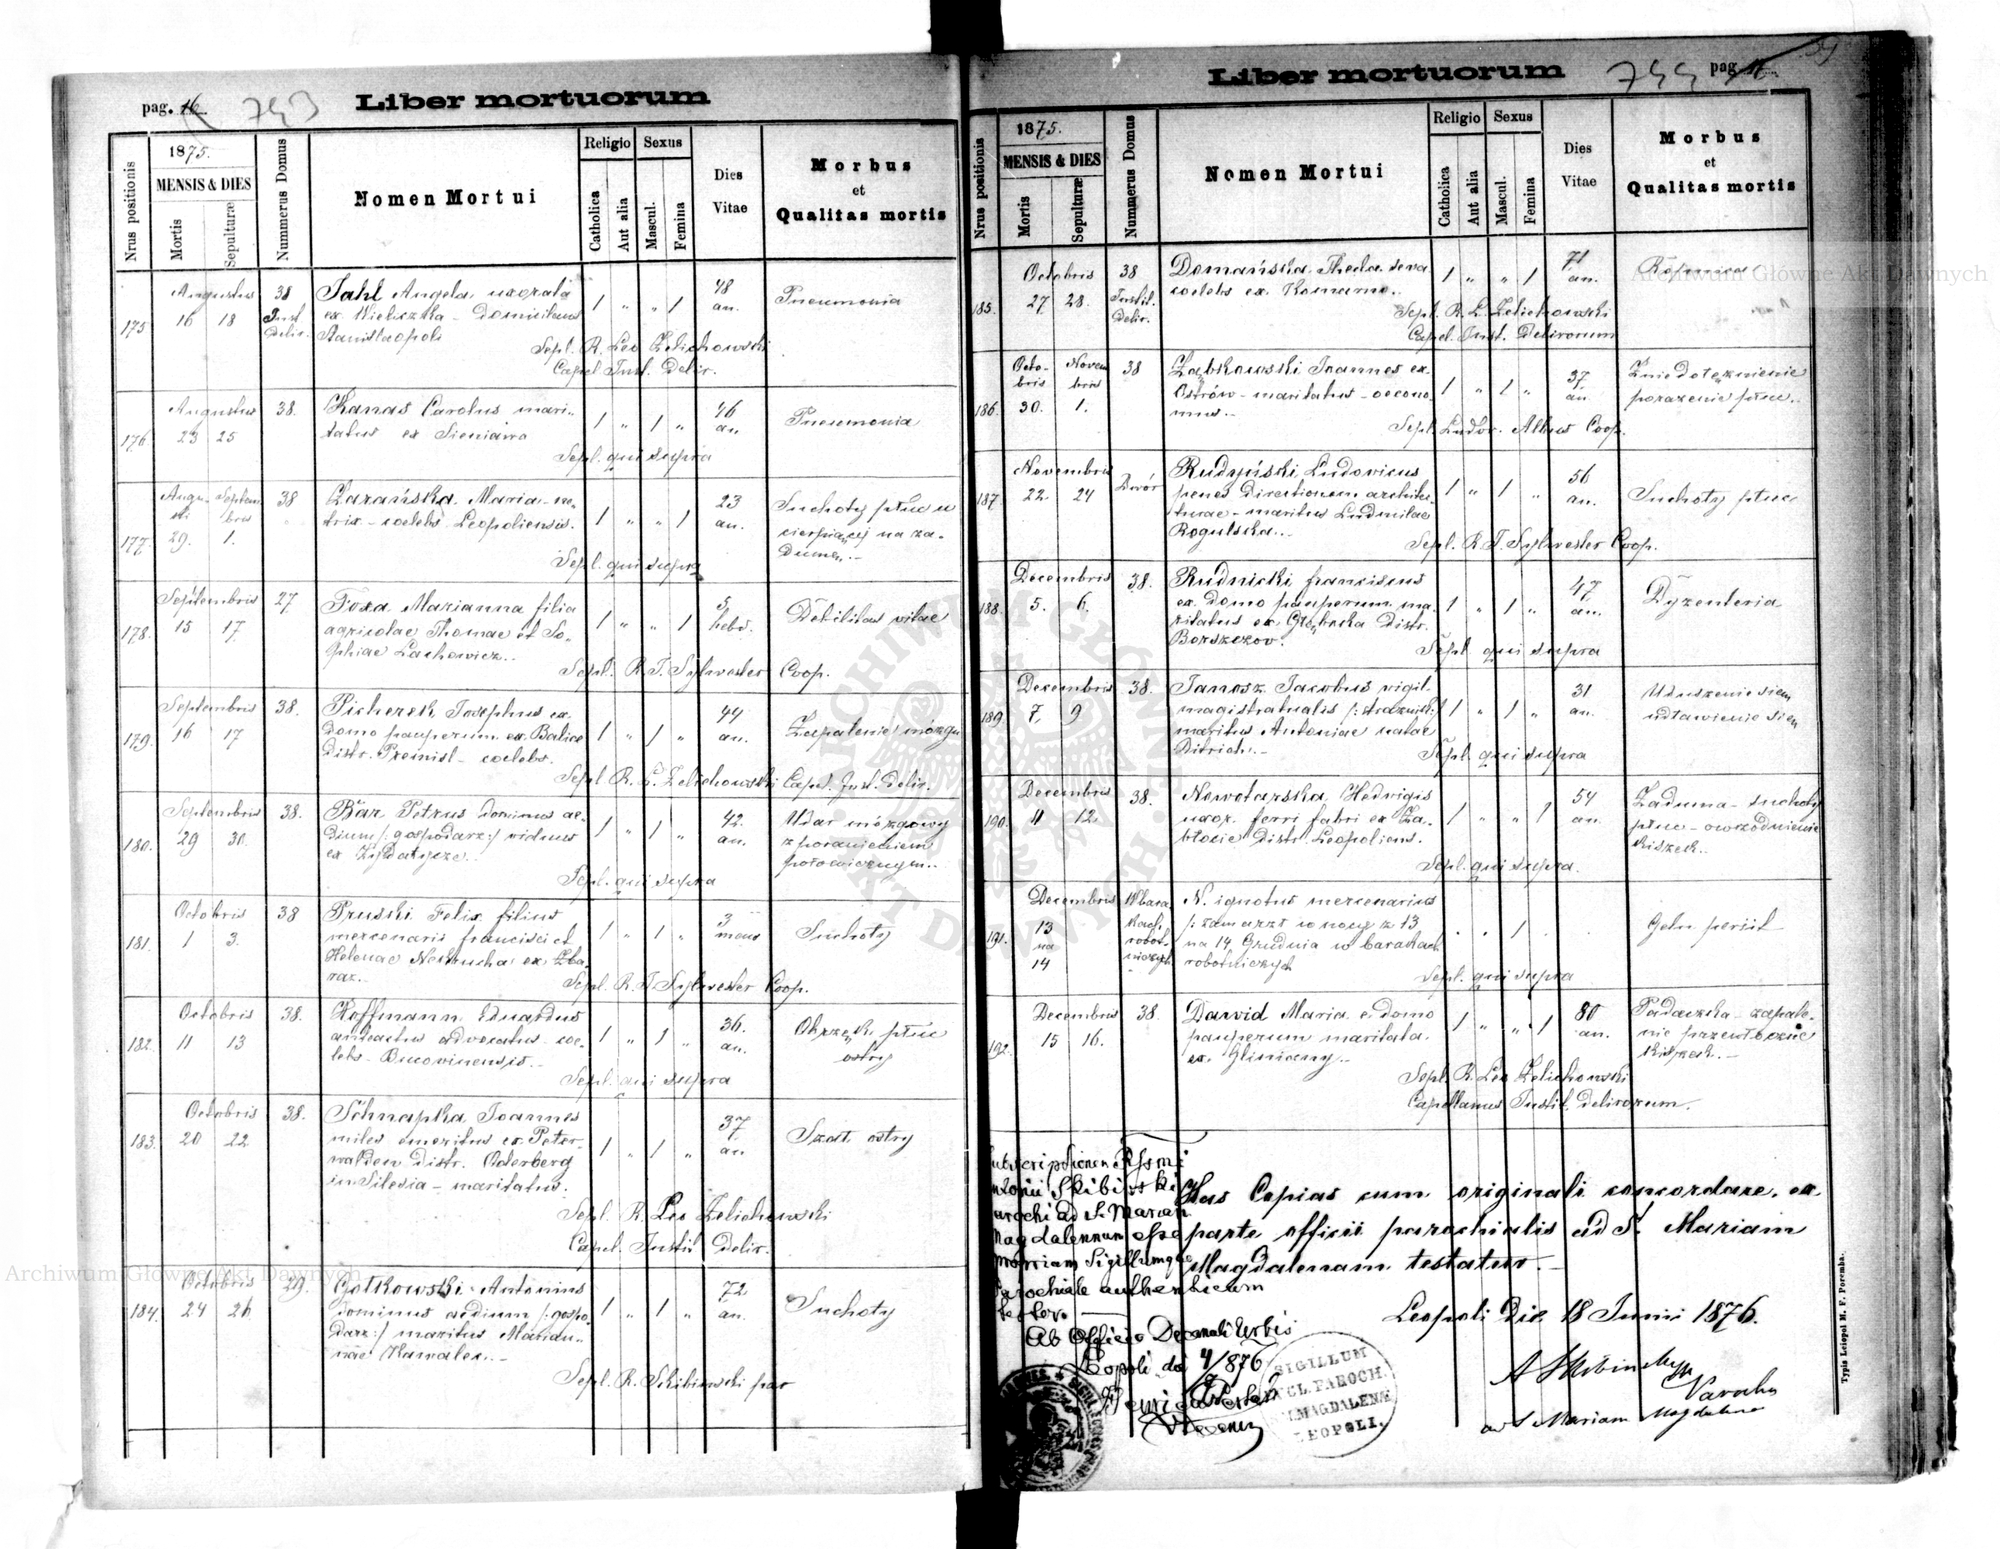 pag. 16 743
Liber mortuorum
Nrus positionis
1875.
MENSIS & DIES
Mortis
Sepulturæ
Nummerus Domus
Nomen Mortui
Religio
Catholica
Aut alia
Sexus
Mascul.
Femina
Dies
Vitae
Morbus
et
Qualitas mortis
175
Augustus
16 18
38
Inst.
Delir.
Jahl Angela uxorata
ex Wieliczka – Domiciliens
Stanislaopoli
1 " " 1
48
an.
Pneumonia
Sepl. R. Leo Zelichowski
Capel. Inst. Delir.
176
Augustus
23 25
38.
Kanas Carolus mari-
tatus ex Sieniawa
1 " 1 "
46
an.
Pneumonia
Sepl. qui supra
177.
Augu-
sti
29.
Septem
bris
1.
38
Maria
coelebs – Leopoliensis.
1 " " 1
23
an.
Suchoty płuc u
cierpiącej na za-
dumę.–
Sepl. qui supra
178.
Septembris
15 17
27.
Foxa Marianna filia
agricolae Thomae et So-
phiae Lachowicz..
1 " " 1
5.
hebd.
Debilitas vitae
Sepl. R. T. Sylwester Coop.
179.
Septembris
16 17
38.
Picherek Josephus ex
Domo pauperum ex Balice
Distr. Przemisl – coelebs.
1 " 1 "
44
an.
Zapalenie mózgu
Sepl. R. L. Zelichowski Capel. Inst. Delir.
180.
Septembris
29 30.
38.
Bär Petrus dominus ae-
dium /: gospodarz :/ viduus
ex Żydatycze..
1 " 1 "
42.
an.
Udar mózgowy
z porażeniem
połowicznym..
Sepl. qui supra
181.
Octobris
1 3.
38
Pruski Felix filius
mercenarii Francisci et
Helenae ex Zba-
raż..
1 " 1 "
3
mens
Suchoty
Sepl. R. T. Sylwester Coop.
182.
Octobris
11 13
38.
Hoffmann Eduardus
anteactus advocatus coe-
lebs – Bucovinensis.–
1 " 1 "
36.
an.
Obrzęk płuc
ostry
Sepl. qui supra
183.
Octobris
20 22
38.
Schnapka Joannes
miles emeritus ex Peter-
walden Distr. Oderberg
in Silesia – maritatus.
1 " 1 "
37
an.
Szał ostry
Sepl. R. Leo Zelichowski
Capel. Instit. Delir.
184.
Octobris
24 26
29.
Gotkowski Antonius
dominus aedium /: gospo-
darz :/ maritus Marian-
nae Kawalex..–
1 " 1 "
72
an.
Suchoty
Sepl. R. Skibiński par
Liber mortuorum
744 pag.
Nrus positionis
1875.
MENSIS & DIES
Mortis
Sepulturæ
Nummerus Domus
Nomen Mortui
Religio
Catholica
Aut alia
Sexus
Mascul.
Femina
Dies
Vitae
Morbus
et
Qualitas mortis
185.
Octobris
27 28.
38
Instit.
Delir.
Domańska Thecla serva
coelebs ex Komarno..
1 " " 1
71
an.
Sepl. R. L. Zelichowski
Capel. Inst. Delirorum
186.
Octo-
bris
30.
Novem
bris
1.
38
Ząbkowski Joannes ex
Ostrów – maritatus – oecono-
mus.–
1 " 1 "
37
an.
Zniedołężnienie
porażenie płuc..
Sepl. Ludov. Albus Coop.
187.
Novembris
22. 24
Dwór
Rudyński Ludovicus
penes Directionem architec-
turae – maritus Ludmilae
Rogulska..
1 " 1 "
56
an.
Suchoty płuc
Sepl. R. T. Sylwester Coop.
188.
Decembris
5. 6.
38.
Rudnicki Franciscus
ex domo pauperum ma-
ritatus ex Distr.
Borszczov.
1 " 1 "
47
an.
Dyzenteria
Sepl. qui supra
189.
Decembris
7. 9
38.
Janosz Jacobus vigil
magistratualis /: strażnik :/
maritus Antoniae natae
Ditrich..–
1 " 1 "
31
an.
Uduszenie siem
udławienie siem
Sepl. qui supra
190.
Decembris
11 12.
38.
Nowotarska Hedvigis
uxor ferri fabri ex Za-
błocie Distr. Leopoliens.
1 " " 1
54
an.
Zaduma – suchoty
płuc – owrzodnienie
kiszek..
Sepl. qui supra.
191.
Decembris
13
na
14
W bara
kach
robot-
niczych
N. ignotus mercenarius
/: zamarzł w nocy z 13
na 14 Grudnia w barakach
robotniczych
" " 1
Gelu periit
Sepl. qui supra
192.
Decembris
15 16.
38.
Dawid Maria e domo
pauperum maritata
ex Gliniany..
1 " " 1
80
an.
Padaczka – zapale-
nie przewłoczne
kiszek.–
Sepl. R. Leo Zelichowski
Capellanus Instit. delirorum.
Has Copias cum originali concordare, ex
parte officii parochialis ad S. Mariam
Magdalenam testatur.–
Leopoli Die 18 Junii 1876.
A Skibiński
Parochus
ad S Mariam Magdalenam
Subscriptionem Rssmi
Antonii Skibiński
parochi ad S. Mariam
Magdalenam esse
propriam Sigillumque
parochiale authenticum
testor.
Ab Officio Decanali Urbis
Leopoli die 4/876
SIGILLUM
ECCL. PAROCH.
S. M. MAGDALENÆ
LEOPOLI.
Typis Leiopol M. F. Poremba.
Archiwum Główne Akt Dawnych
Archiwum Główne Akt Dawnych
ARCHIWUM GŁÓWNE AKT DAWNYCH